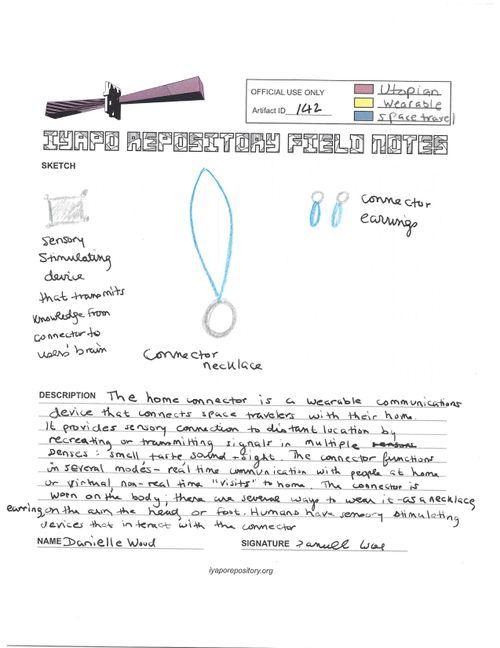 OFFICIAL USE ONLY
Artifact ID 142
Utopian
Wearable
Space travel
IYAPO REPOSITORY FIELD NOTES
SKETCH
Sensory
Stimulating
device
that transmits
knowledge from
connector to
users' brain
Connector
necklace
connector
earrings
DESCRIPTION The home connector is a wearable communications
device that connects space travelers with their home.
It provides sensory connection to distant location by
recreating or transmitting signals in multiple
senses: small taste sound + sight. The connector functions
in several modes - real time communication with people at home
or virtual, non-real time "visits" to home. The connector is
worn on the body; there are several ways to wear it - as a necklace,
earring, on the arm the head, or foot. Humans have sensory stimulating
devices that interact with the connector
NAME Danielle Wood SIGNATURE
iyaporepository.org